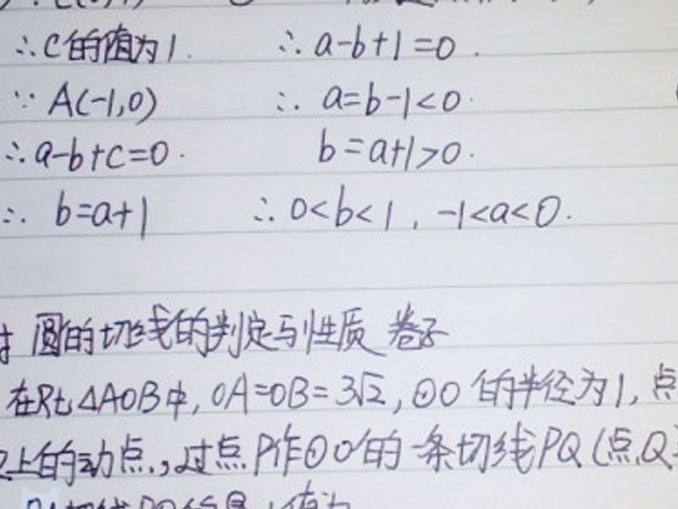 ∴C的值为1. ∴a-b+1=0.
∵A(-1,0) ∴a=b-1<0.
∴a-b+c=0. b=a+1>0.
∴b=a+1 ∴0<b<1,-1<a<0.
圆的切线的判定与性质 卷子
在Rt△AOB中,OA=OB=3√2,⊙O的半径为1,点
上的动点,过点P作⊙O的一条切线PQ(点Q